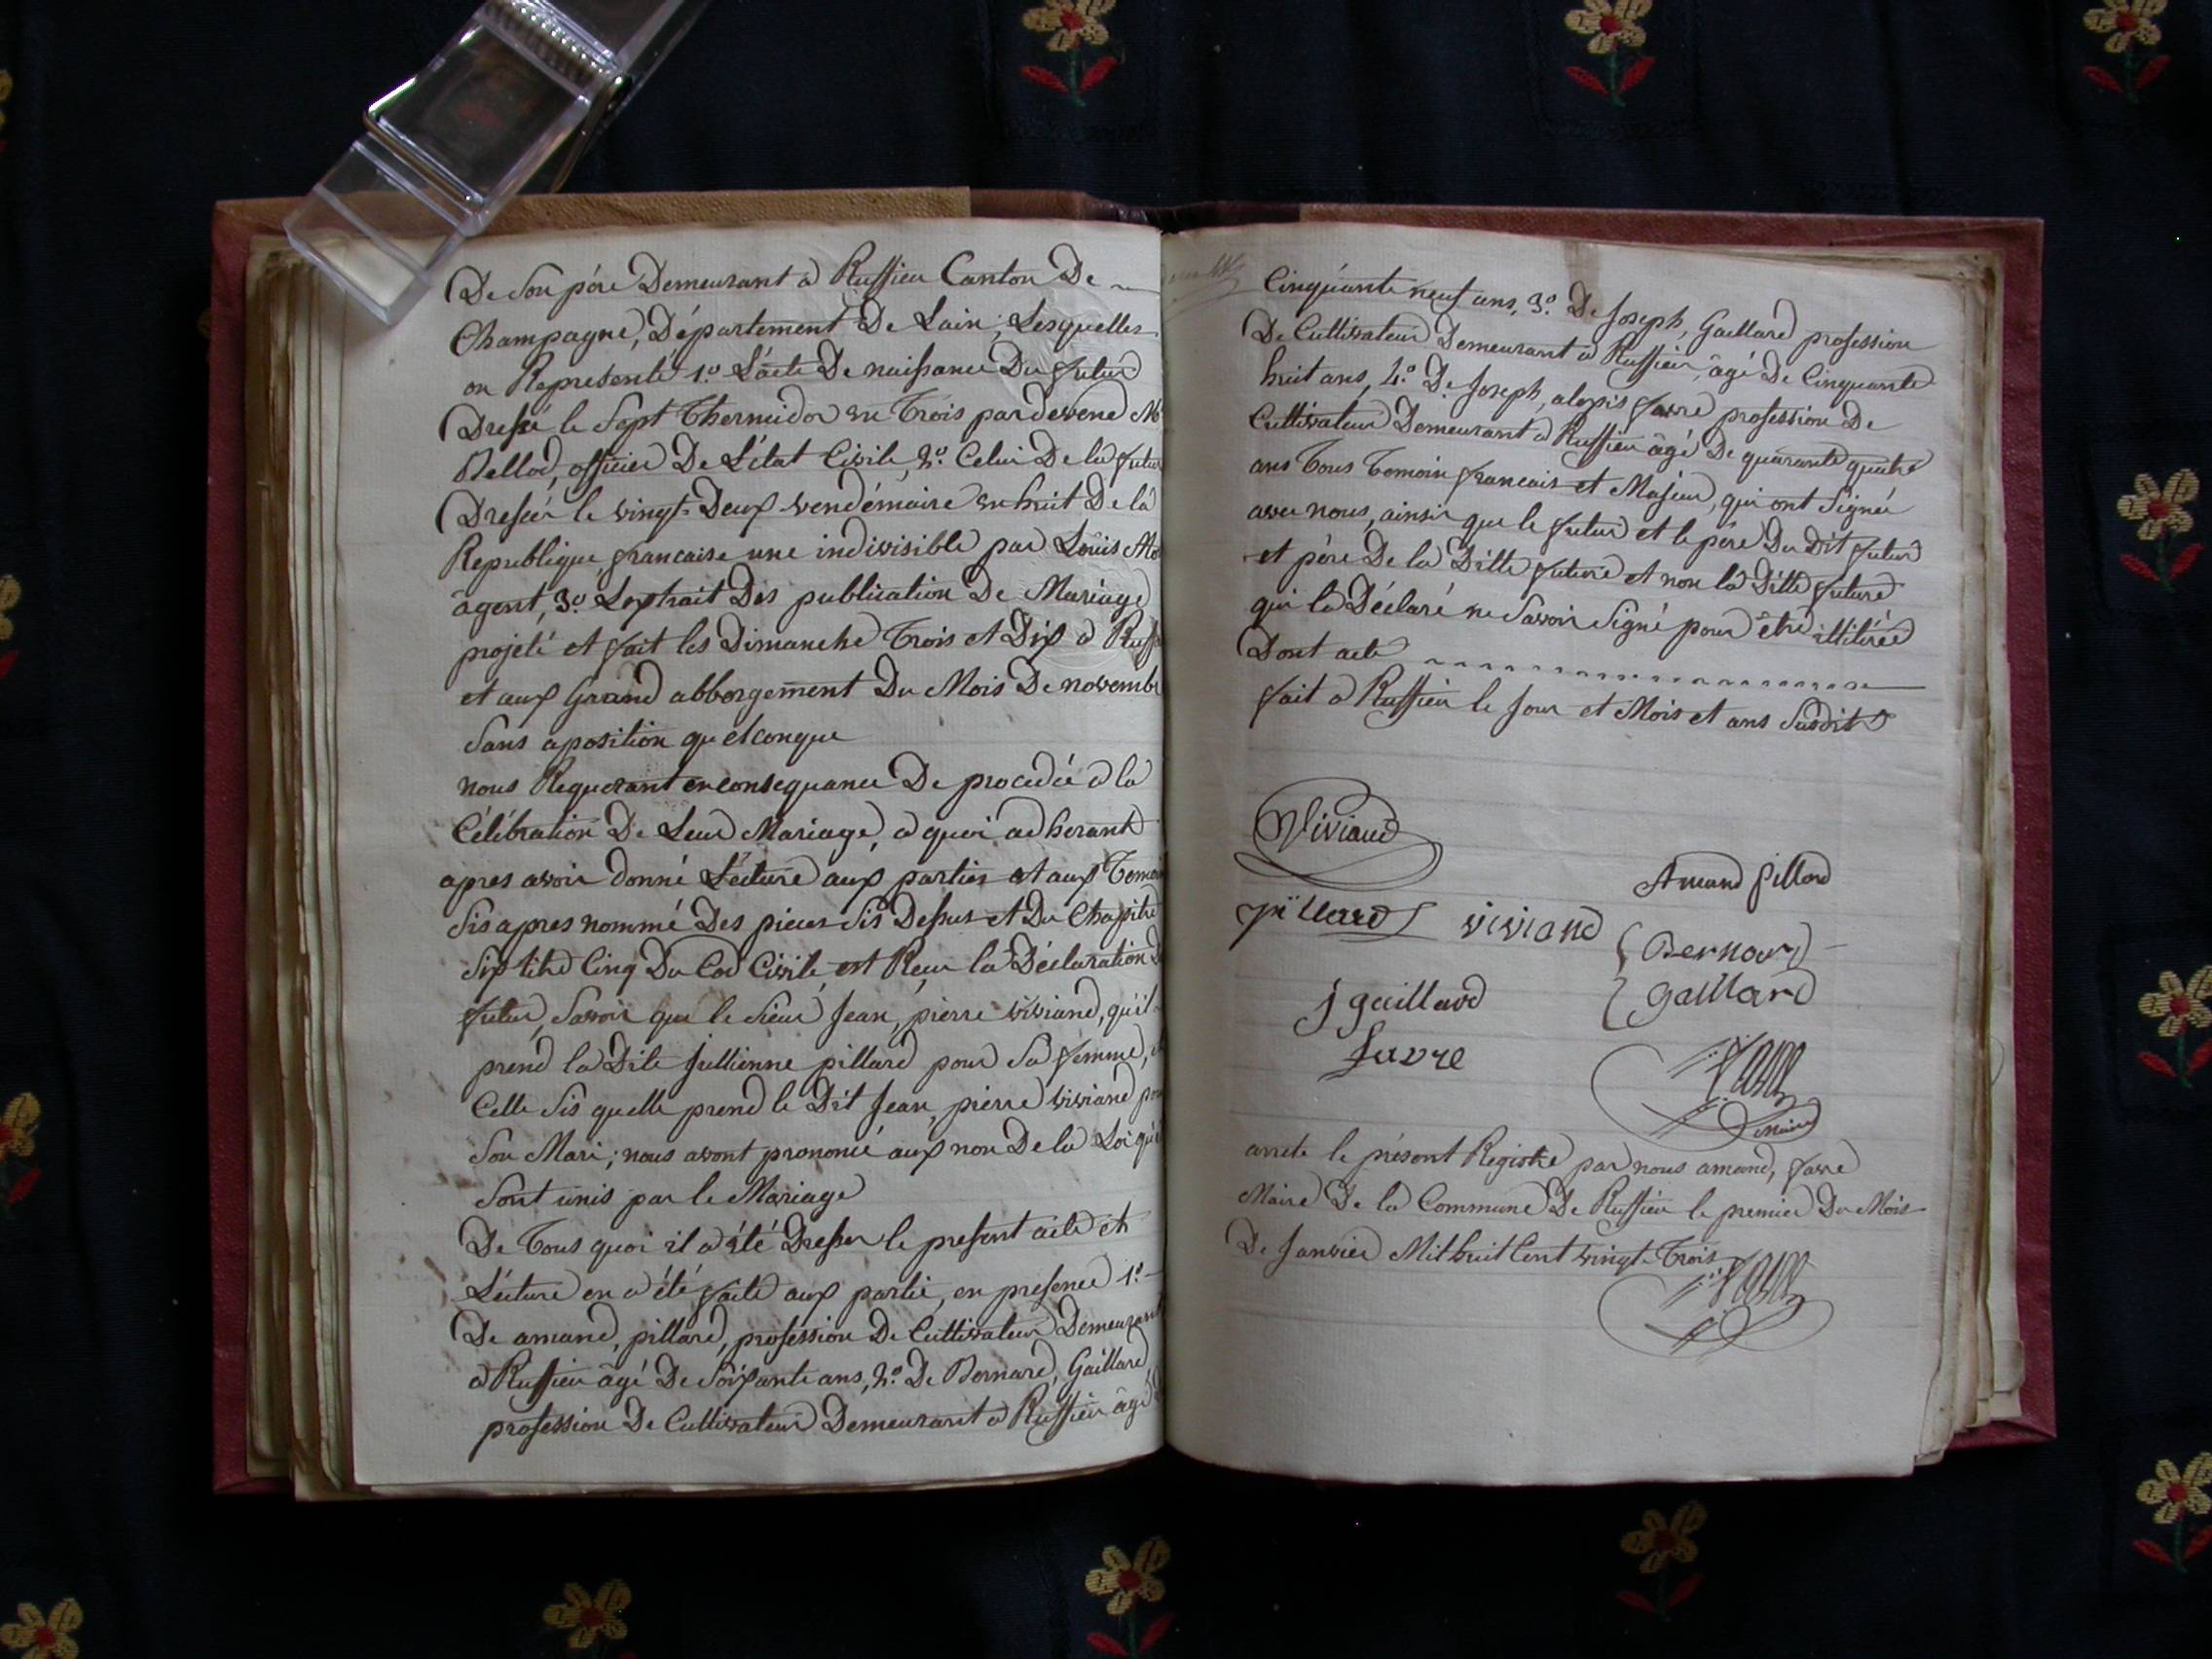 De Son pére Demeurant a Ruffieu Canton De
Champagne, Département De Lain; Lesquelles
on Representé 1.o L'acte De naissance Du futur
Dressé le Sept Thermidor en Trois par devene
Bellod, officier De L'état Civile, 2.o Celui De la futur
Dresséé le vingt-Deux vendémiaire en huit De la
Republique francaise une indivisible par Louis
âgent, 3.o Lextrait Des publication De Mariage
projeté et fait les Dimanche Trois et Dix a Ruff
et aux Grand abborgement Du Mois De novembr
Sans aposition quelconque
nous Requerant en consequance De procedée a la
Célébration De Leur Mariage, a quoi adherant
apres avoir donné Lecture aux parties et aux Temoi
Sis apres nommé Des pieces Sis Dessus et Du Chapitre
Six titre Cinq Du Cod Civile, est Reçu la Déclaration D
futur, Savoir que le Sieur Jean, pierre viviand, qu'il
prend la Dite Jullienne pillard pour Sa femme,
Celle Sis quelle prend le Dit Jean, pierre viviand pou
Son Mari; nous avont prononcé aux non De la Loi qu'i
Sont unis par le Mariage
De Tous quoi il a été Dresser le present acte et
Lécture en a été faite aux partie, en presence 1.o
De amand, pillard, profession De Cultivateur Demeurant
a Ruffieu âgé De Soixante ans, 2.o De Bernard, Gaillard,
profession De Cultivateur Demeurant a Ruffieu âgé
Cinquante neuf ans, 3.o De Joseph, Gaillard profession
De Cultivateur Demeurant a Ruffieu, âgé De Cinquante
huit ans, 4.o De Joseph, alexis favre profession De
Cultivateur Demeurant a Ruffieu âgé De quarante quatre
ans Tous Temoin francais et Majeur, qui ont Signéé
avec nous, ainsi que le futur et le pére Du Dit futur
et pére De la Ditte future et non la Ditte future
qui la Déclaré ne Savoir Signé pour être illitérée
Dont acte
fait a Ruffieu le Jour et Mois et ans Susdit
Viviand
Amand pillard
pillard viviand
Bernard
j gaillard
gaillard
favre
favre
Maire
arreté le présent Registre par nous amand, favre
Maire De la Commune De Ruffieu le premier Du Mois
De Janvier Mil huit Cent vingt-Trois
favre